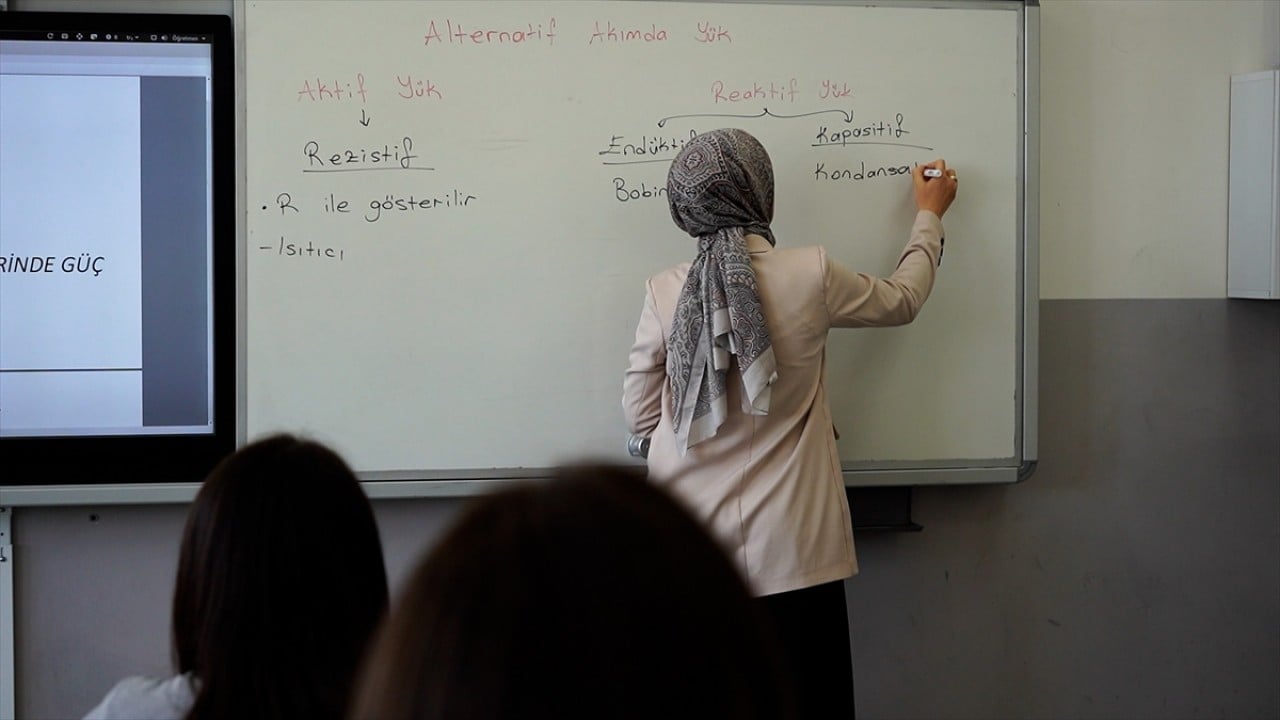 Öğretmen
RİNDE GÜÇ
Alternatif Akımda Yük
Aktif Yük
Rezistif
. R ile gösterilir
- Isıtıcı
Reaktif Yük
Endükti
Bobin
Kapasitif
Kondansa